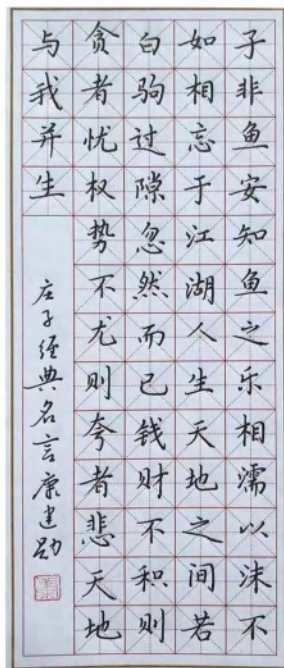 子非鱼安知鱼之乐相濡以沫不
如相忘于江湖人生天地之间若
白驹过隙忽然而已钱财不积则
贪者忧权势不尤则夸者悲天地
与我并生
庄子经典名言康建勋